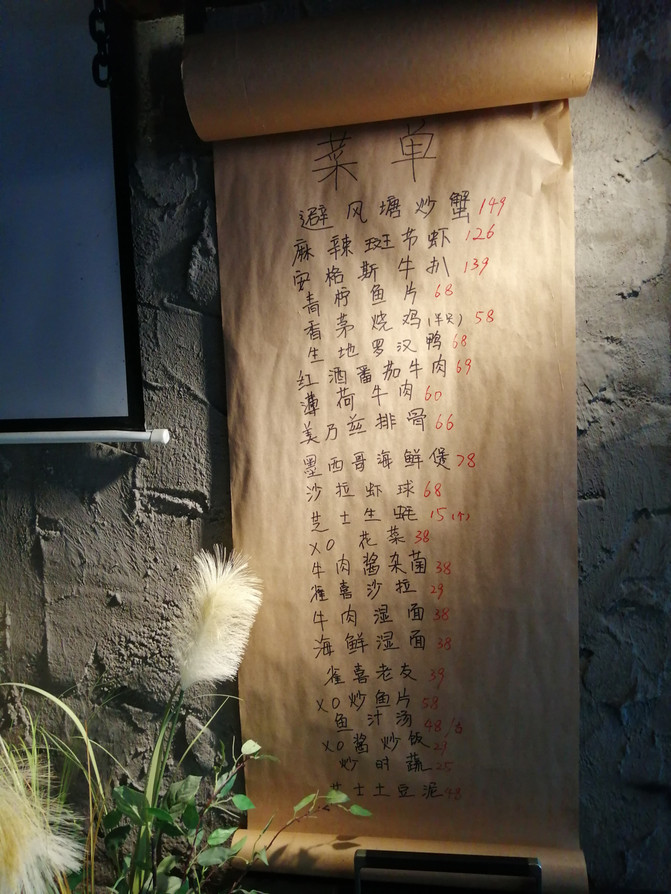 菜单
避风塘炒蟹 149
麻辣斑节虾 126
安格斯牛扒 139
青柠鱼片 68
香茅烧鸡(半只) 58
生地罗汉鸭 68
红酒番茄牛肉 69
薄荷牛肉 60
美乃兹排骨 66
墨西哥海鲜煲 78
沙拉虾球 68
芝士生蚝 15(个)
XO 花菜 38
牛肉酱杂菌 38
雀喜沙拉 29
牛肉湿面 38
海鲜湿面 38
雀喜老友 39
XO炒鱼片 58
鱼汁汤 48/6
XO酱炒饭 29
炒时蔬 25
芝士土豆泥 48